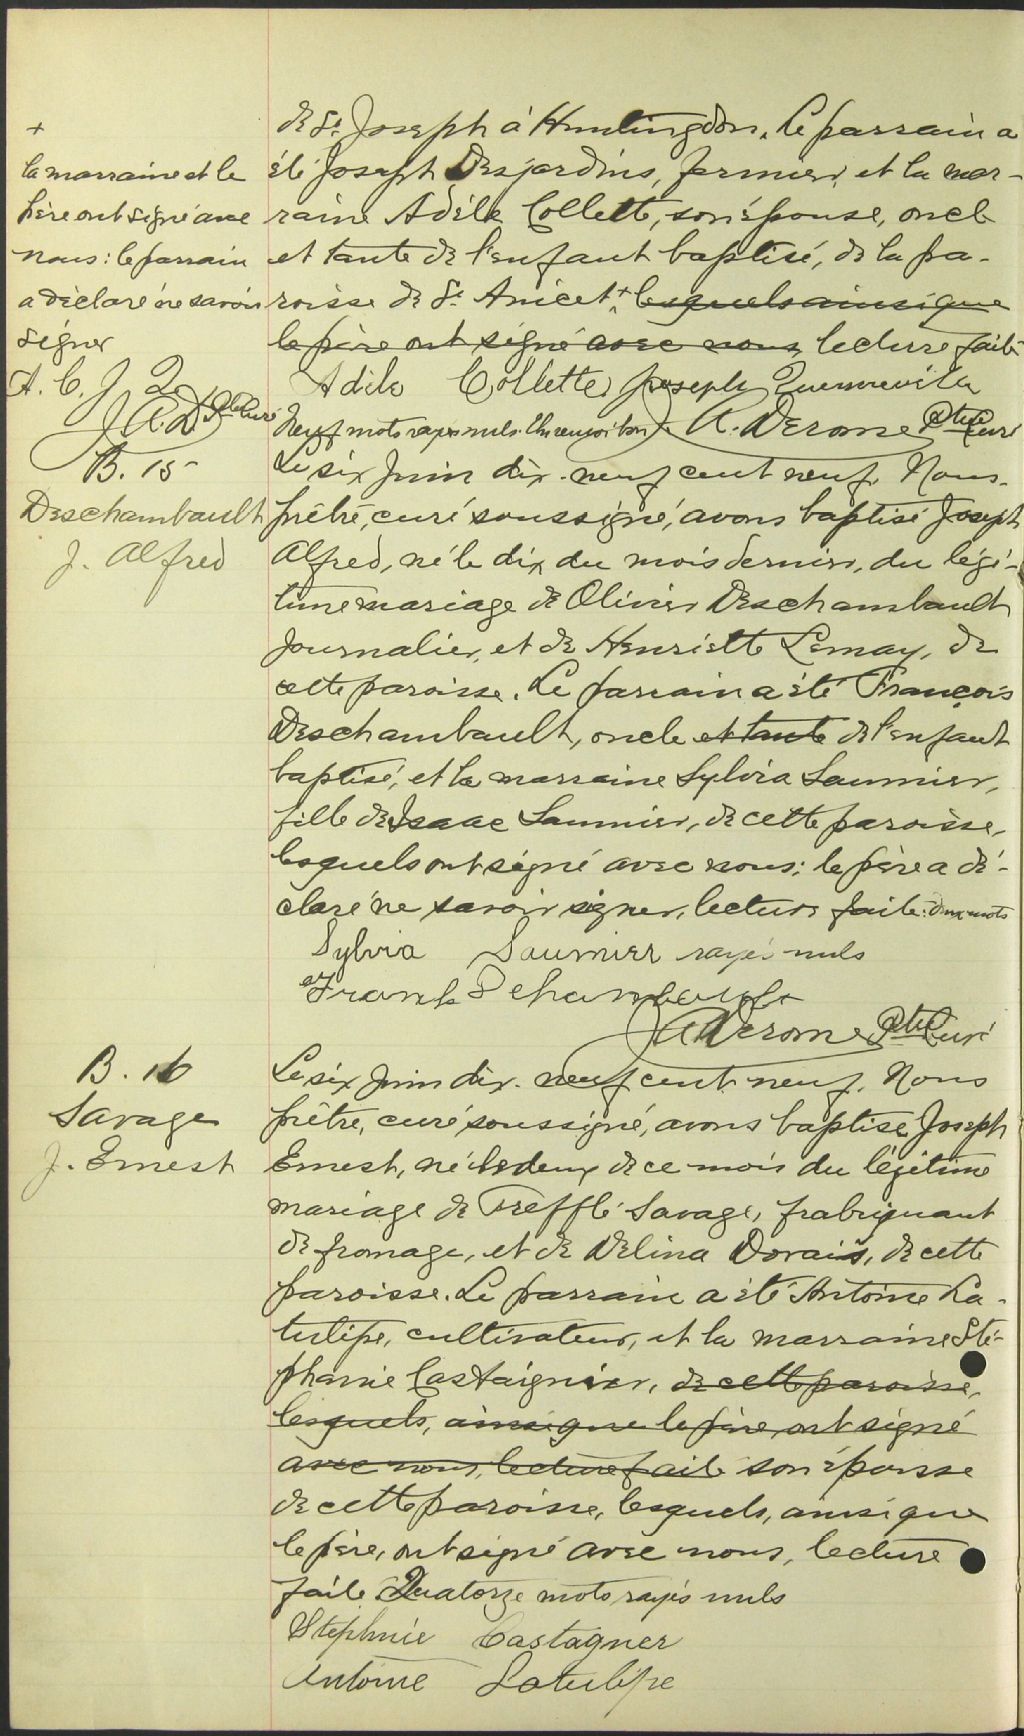 +
la marraine et le
père ont signé avec
nous: le parrain
a déclaré ne savoir
signer
A. C. J. Q.
J. A. D. Ptre Curé
de St Joseph à Huntingdon. Le parrain a
été Joseph Desjardins, fermier, et la mar-
raine Adèle Collette, son épouse, oncle
et tante de l'enfant baptisé, de la pa-
roisse de St Anicet + lesquels ainsi que
le père ont signé avec nous, lecture faite
Adile Collette Joseph Quenneville
Neuf mots rayés nuls. Un renvoi bon J. A. Derome Ptre Curé
B. 15
Deschambault
J. Alfred
Le six Juin dix-neuf cent neuf, Nous
prêtre, curé soussigné, avons baptisé Joseph
Alfred, né le dix du mois dernier, du légi-
time mariage de Olivier Deschambault
journalier, et de Henriette Lemay, de
cette paroisse. Le parrain a été François
Deschambault, oncle et tante de l'enfant
baptisé, et la marraine Sylvia Saumier,
fille de Isaac Saumier, de cette paroisse,
lesquels ont signé avec nous: le père a dé-
claré ne savoir signer, lecture faite. deux mots
Sylvia Saumier rayés nuls
Frank Dechambault
J A Derome Ptre Curé
B. 16
Savage
J. Ernest
Le six Juin dix-neuf cent neuf, Nous
prêtre, curé soussigné, avons baptisé Joseph
Ernest, né le deux de ce mois du légitime
mariage de Trefflé Savage, frabriquant
de fromage, et de Délina Dorais, de cette
paroisse. Le parrain a été Antoine La-
tulipe, cultivateur, et la marraine Sté-
phanie Castaignier, de cette paroisse,
lesquels, ainsi que le père, ont signé
avec nous, lecture faite son épouse
de cette paroisse, lesquels, ainsi que
le père, ont signé avec nous, lecture
faite. Quatorze mots rayés nuls
Stéphnie Castagner
Antoine Latulipe